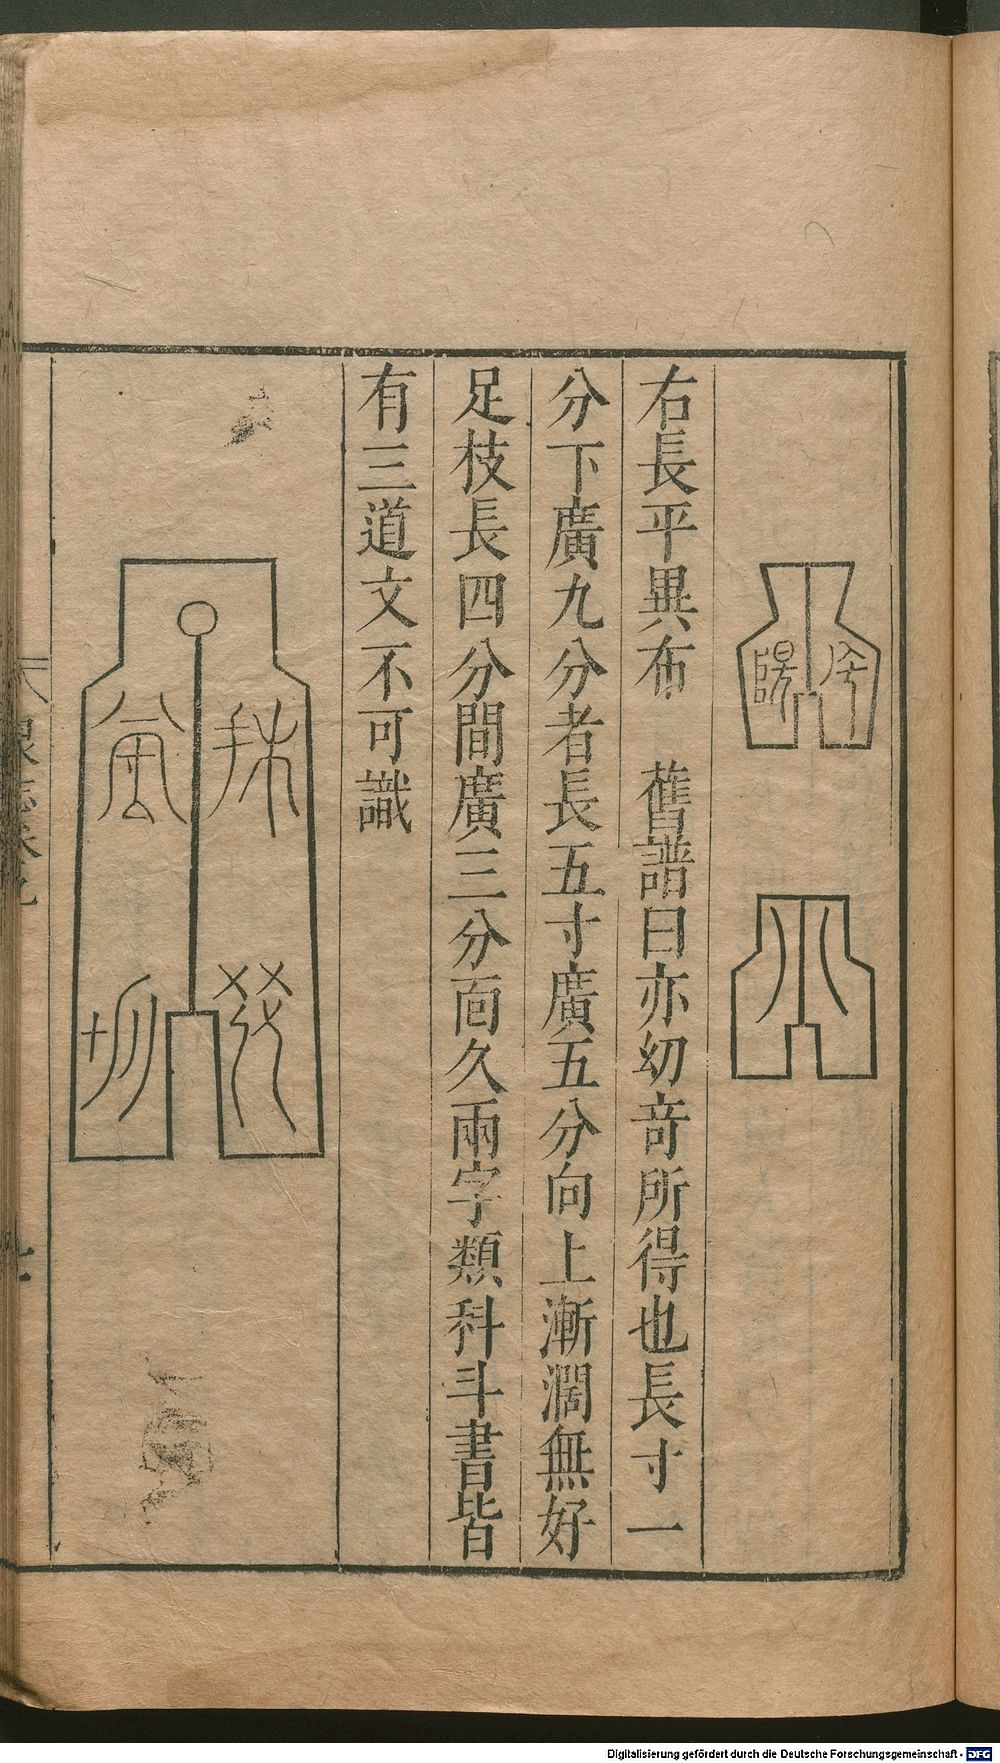 右長平異布　舊譜曰亦幼竒所得也長寸一
分下廣九分者長五寸廣五分向上漸濶無好
足枝長四分間廣三分面久兩字類科斗書皆
有三道文不可識
Digitalisierung gefördert durch die Deutsche Forschungsgemeinschaft - DFG